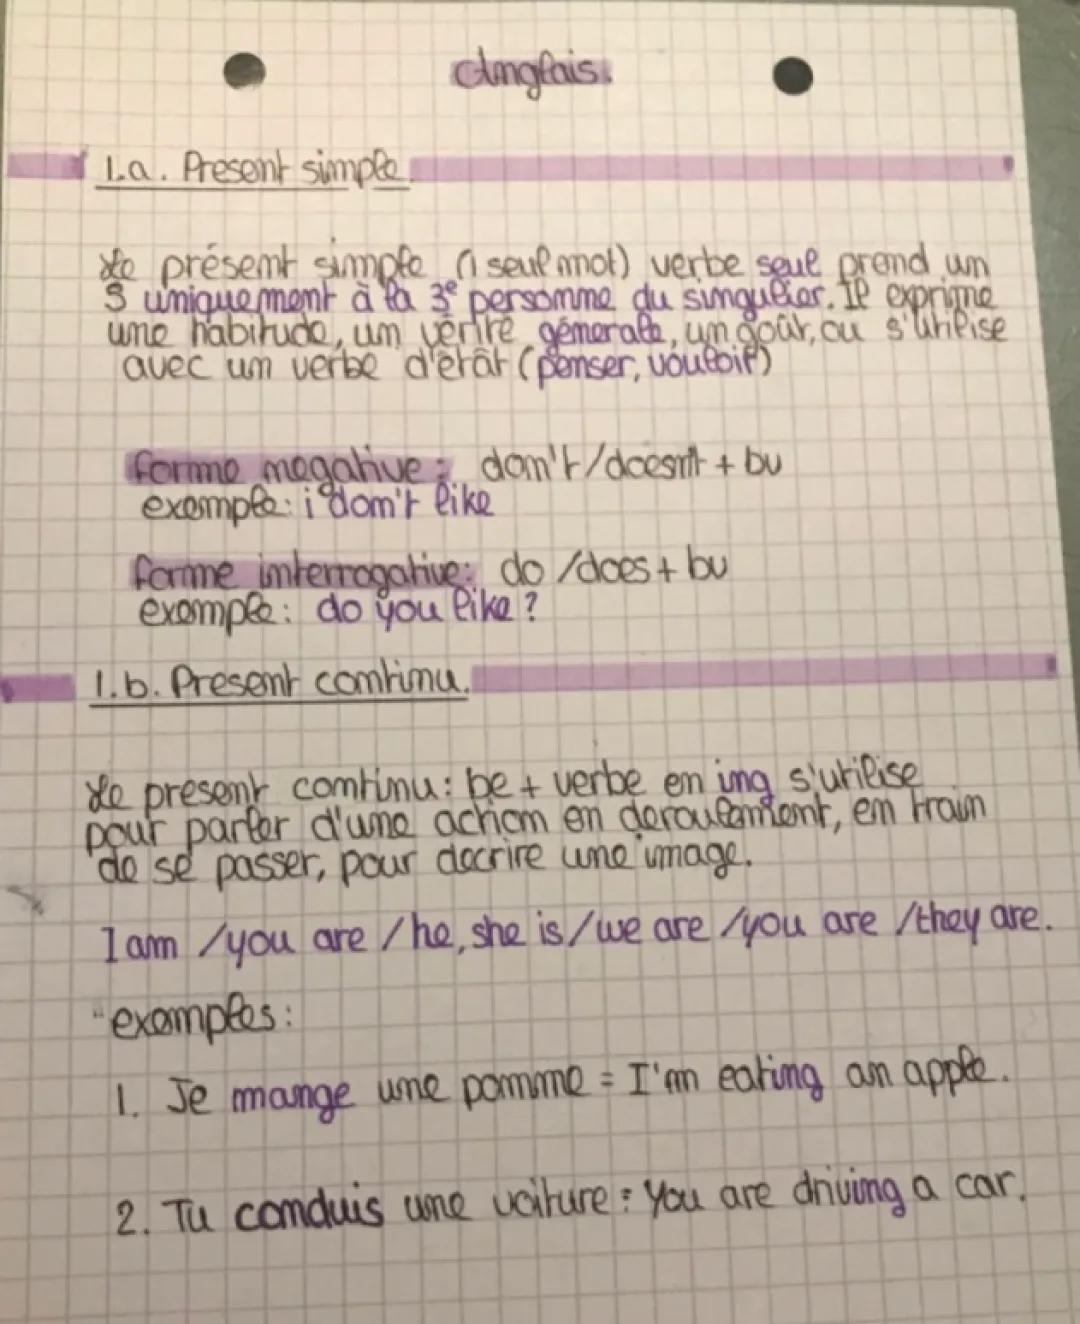 Anglais.
1.a. Present simple
Le présent simple (1 seul mot) verbe seul prend un
S uniquement à la 3e personne du singulier. Il exprime
une habitude, un vérité générale, un goût, ou s'utilise
avec un verbe d'état (penser, vouloir)
forme negative : don't/doesn't + bv
exemple : i don't like
forme interrogative: do /does + bv
exemple : do you like ?
1.b. Present continu.
Le present continu : be + verbe en ing s'utilise
pour parler d'une action en deroulement, en train
de se passer, pour decrire une image.
I am /you are / he, she is/we are /you are /they are.
exemples :
1. Je mange une pomme = I'm eating an apple.
2. Tu conduis une voiture = You are driving a car.